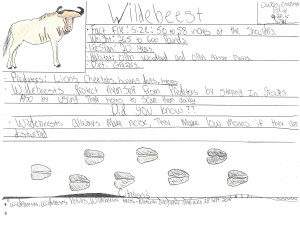 Wildebeest
Fact File: Size: 50 to 58 inches at the Shoulders
Weight: 265 to 600 pounds
Lifespan: 20 years
Habitat: Open Woodland and Open Grass Plains
Diet: Grazers
Predators: Lions, cheetahs, hunting dogs, hyenas
Wildebeests Protect themself from Predators by staying In Groups
Also by using Their horns to scare them away
Did you know??
Wildebeests allways Make noise, They Make low moans if they are
disturbed
Citations